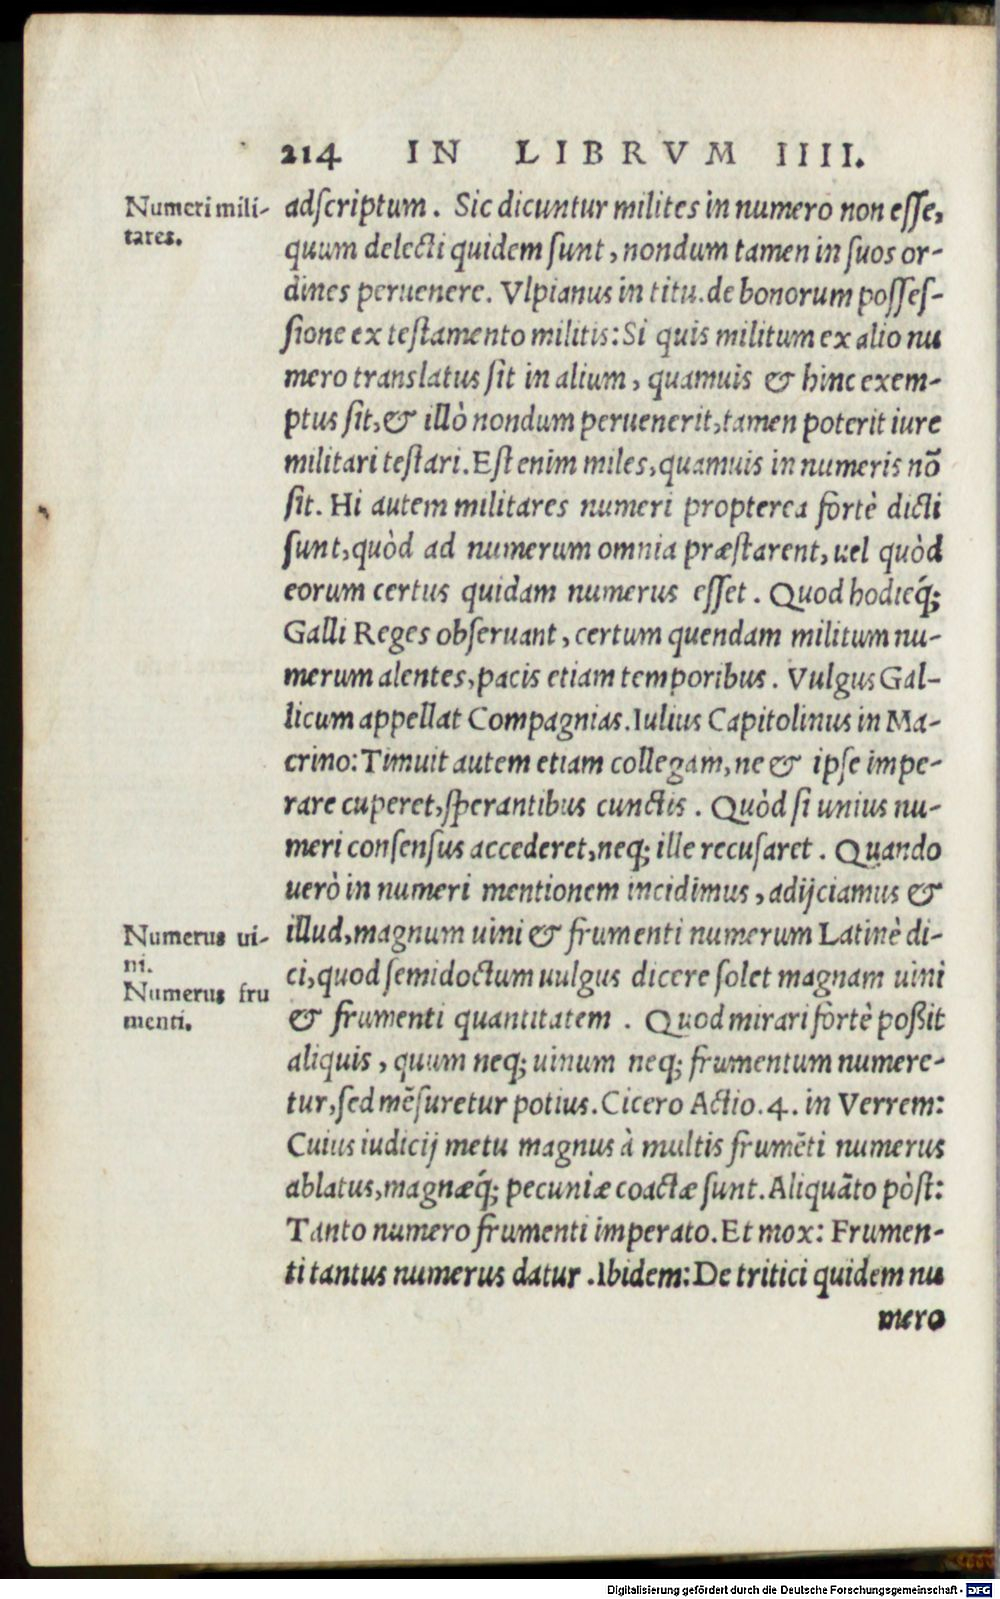 214 IN LIBRVM IIII.
Numeri mili-
tares.
adſcriptum. Sic dicuntur milites in numero non eſſe,
quum delecti quidem ſunt, nondum tamen in ſuos or-
dines peruenere. Vlpianus in titu. de bonorum poſſeſ-
ſione ex teſtamento militis: Si quis militum ex alio nu
mero translatus ſit in alium, quamuis & hinc exem-
ptus ſit, & illò nondum peruenerit, tamen poterit iure
militari teſtari. Eſt enim miles, quamuis in numeris nō
ſit. Hi autem militares numeri propterea fortè dicti
ſunt, quòd ad numerum omnia præſtarent, uel quòd
eorum certus quidam numerus eſſet. Quod hodieq́;
Galli Reges obſeruant, certum quendam militum nu-
merum alentes, pacis etiam temporibus. Vulgus Gal-
licum appellat Compagnias. Iulius Capitolinus in Ma-
crino: Timuit autem etiam collegam, ne & ipſe impe-
rare cuperet, ſperantibus cunctis. Quòd ſi unius nu-
meri conſenſus accederet, neq; ille recuſaret. Quando
uerò in numeri mentionem incidimus, adijciamus &
Numerus ui-
ni.
Numerus fru
menti.
illud, magnum uini & frumenti numerum Latinè di-
ci, quod ſemidoctum uulgus dicere ſolet magnam uini
& frumenti quantitatem. Quod mirari fortè poßit
aliquis, quum neq; uinum neq; frumentum numere-
tur, ſed mēſuretur potius. Cicero Actio. 4. in Verrem:
Cuius iudicij metu magnus à multis frumēti numerus
ablatus, magnæq́; pecuniæ coactæ ſunt. Aliquāto pòſt:
Tanto numero frumenti imperato. Et mox: Frumen-
ti tantus numerus datur. Ibidem: De tritici quidem nu
mero
Digitalisierung gefördert durch die Deutsche Forschungsgemeinschaft - DFG